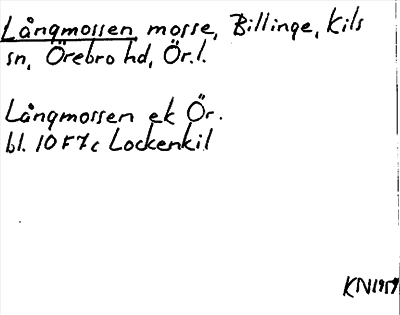 Långmossen mosse, Billinge, Kils
sn, Örebro hd, Ör.l.
Långmossen ek Ör.
bl. 10F7c Lockenkil
KN1959